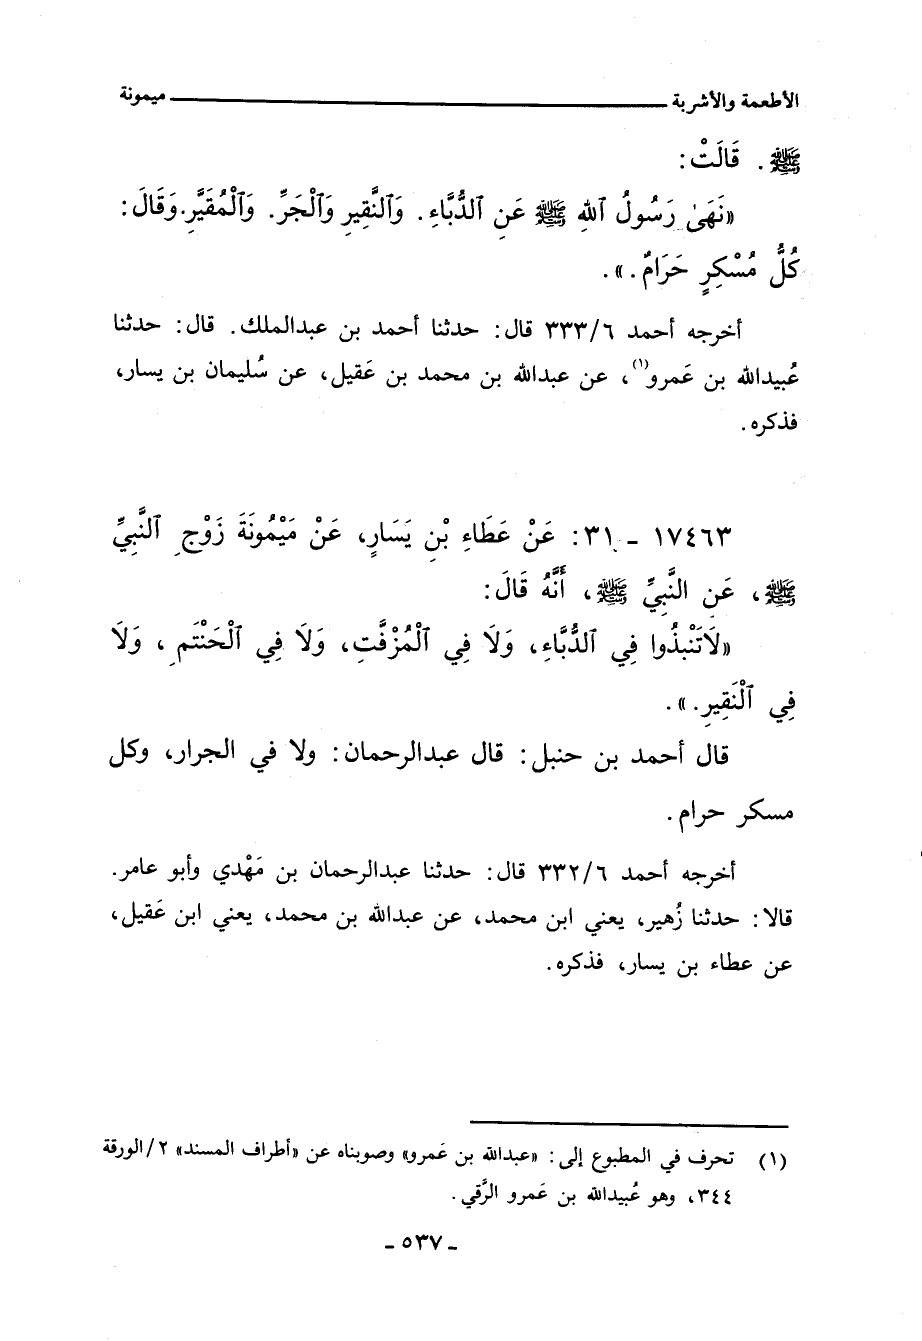 الأطعمة والأشربة ميمونة
ﷺ . قَالَتْ :
«نَهَىٰ رَسُولُ ٱللهِ ﷺ عَنِ ٱلدُّبَّاءِ . وَٱلنَّقِيرِ وَٱلْجَرِّ. وَٱلْمُقَيَّرِ.وَقَالَ :
كُلُّ مُسْكِرٍ حَرَامٌ . » .
أخرجه أحمد ٣٣٣/٦ قال : حدثنا أحمد بن عبدالملك. قال : حدثنا
عُبيدالله بن عَمرو(١)، عن عبدالله بن محمد بن عَقيل، عن سُليمان بن يسار،
فذكره .
١٧٤٦٣ - ٣١ : عَنْ عَطَاءِ بْنِ يَسَارٍ، عَنْ مَيْمُونَةَ زَوْجِ ٱلنَّبِيِّ
ﷺ، عَنِ النَّبِيِّ ﷺ، أَنَّهُ قَالَ :
«لَاتَنْبِذُوا فِي ٱلدُّبَّاءِ، وَلَا فِي ٱلْمُزَفَّتِ، وَلَا فِي ٱلْحَنْتَمِ، وَلَا
فِي ٱلْنَقِيرِ . » .
قال أحمد بن حنبل : قال عبدالرحمان : ولا في الجرار، وكل
مسكر حرام .
أخرجه أحمد ٣٣٢/٦ قال : حدثنا عبدالرحمان بن مَهْدي وأبو عامر.
قالا : حدثنا زُهير، يعني ابن محمد، عن عبدالله بن محمد، يعني ابن عَقيل،
عن عطاء بن يسار، فذكره .
(١) تحرف في المطبوع إلى : «عبدالله بن عَمرو» وصوبناه عن «أطراف المسند» ٢/الورقة
٣٤٤، وهو عُبيدالله بن عَمرو الرَّقي .
- ٥٣٧ -